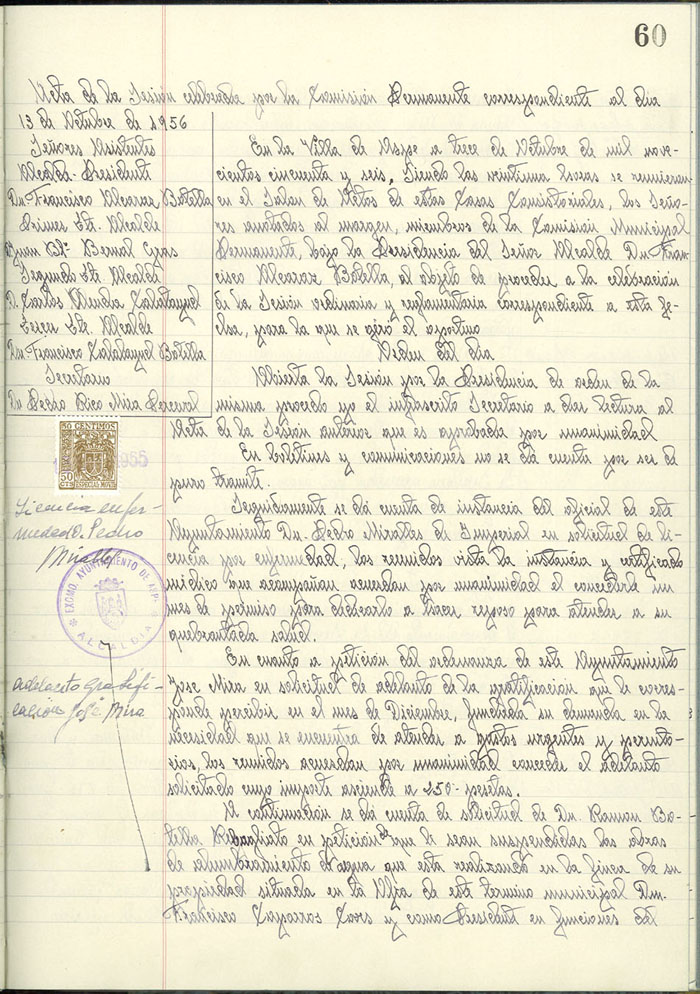 60
Acta de la Sesión celebrada por la Comisión Permanente correspondiente al dia
13 de Octubre de 1956
Señores Asistentes
Alcalde-Presidente
Dn. Francisco Alcaraz Botella
Primer Tte. Alcalde
Dn Juan Bta. Bernal Gras
Segundo Tte Alcalde
D. Carlos Calatayud
Tercer Tte. Alcalde
Dn. Francisco Calatayud Botella
Secretario
Dn Pedro Rico Mira Perceval
En la Villa de Aspe a trece de Octubre de mil nove-
cientos cincuenta y seis, Siendo las veintiuna horas se reunieron
en el Salon de Actos de estas Casas Consistoriales, los Seño-
res anotados al margen, miembros de la Comisión Municipal
Permanente, bajo la Presidencia del Señor Alcalde Dn. Fran-
cisco Alcaraz Botella, al objeto de proceder a la celebración
de la Sesión ordinaria y reglamentaria correspondiente a esta fe-
cha, para la que se fijó el oportuno
Orden del dia
Abierta la Sesión por la Presidencia de orden de la
misma procedo yo el infrascrito Secretario a dar lectura al
Acta de la Sesión anterior que es aprobada por unanimidad
En Boletines y comunicaciones no se dá cuenta por ser de
puro tramite.
Seguidamente se dá cuenta de instancia del oficial de este
Ayuntamiento Dn. Pedro Miralles de Imperial en solicitud de li-
cencia por enfermedad, los reunidos vista la instancia y certificado
médico que acompañan acuerdan por unanimidad el concederle un
mes de permiso para dedicarlo a hacer reposo para atender a su
quebrantada salud.
En cuanto a petición del ordenanza de este Ayuntamiento
Jose Mira en solicitud de adelanto de la gratificación que le corres-
ponde percibir en el mes de Diciembre, fundada su demanda en la
necesidad que se encuentra de atender a gastos urgentes y perento-
rios, los reunidos acuerdan por unanimidad conceder el adelanto
solicitado cuyo importe asciende a 250- pesetas.
A continuación se dá cuenta de solicitud de Dn. Ramon Bo-
tella en petición de que le sean suspendidas las obras
de alumbramiento de agua que esta realizando en la finca de su
propiedad situada en la de este termino municipal Dn.
Francisco Caparros y como Presidente en funciones del
50 CENTIMOS
50
CTS
ESPECIAL MOVIL
1955
Licencia enfer-
medad D. Pedro
Miralles
EXCMO. AYUNTAMIENTO DE ASPE
ALCALDIA
adelanto gratifi-
cación José Mira